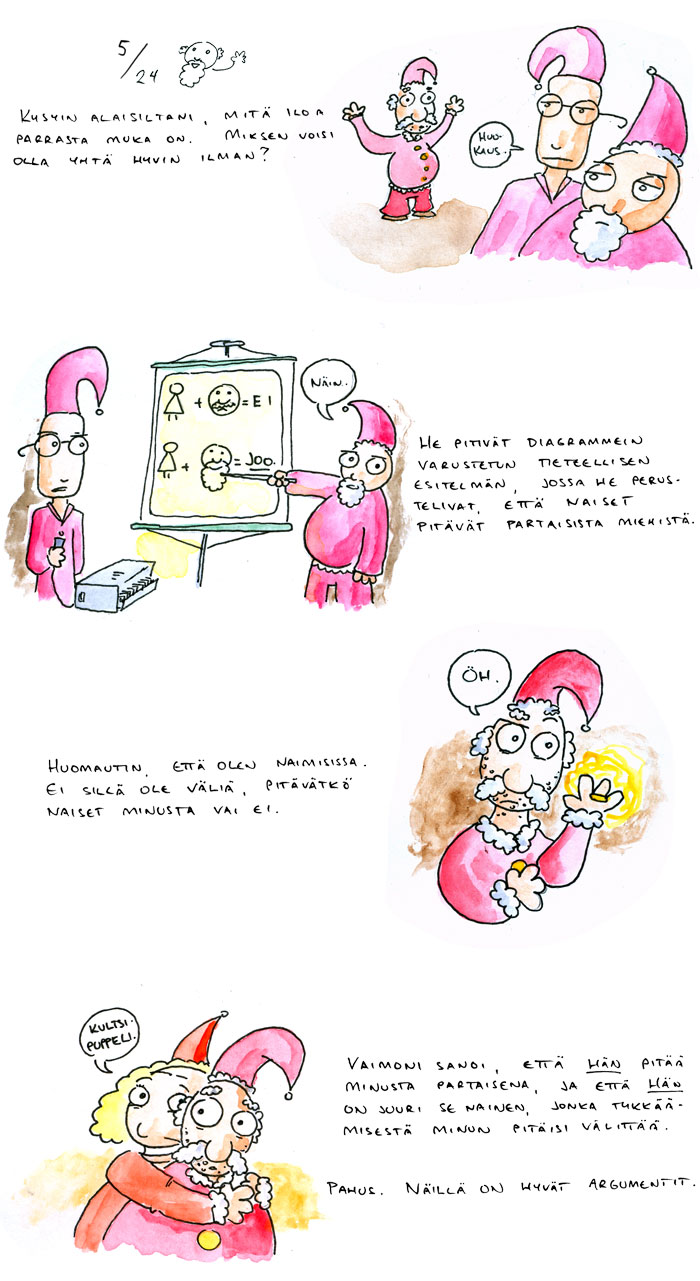 5/24
Kysyin alaisiltani, mitä iloa
parrasta muka on. Miksen voisi
olla yhtä hyvin ilman?
Huo-
kaus.
Näin.
+ = EI
+ = JOO.
He pitivät diagrammein
varustetun tieteellisen
esitelmän, jossa he perus-
telivat, että naiset
pitävät partaisista miehistä.
Öh.
Huomautin, että olen naimisissa.
Ei sillä ole väliä, pitävätkö
naiset minusta vai ei.
Kultsi-
puppeli.
Vaimoni sanoi, että hän pitää
minusta partaisena, ja että hän
on juuri se nainen, jonka tykkää-
misestä minun pitäisi välittää.
Pahus. Näillä on hyvät argumentit.